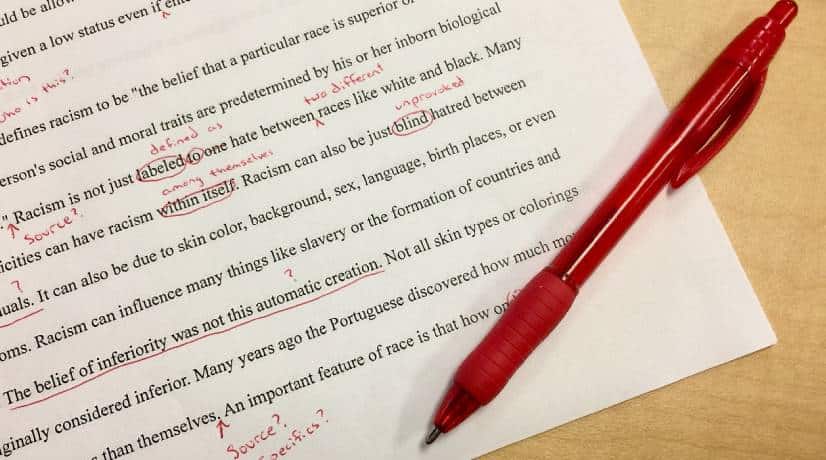 uld be allow
given a low status even if
who is this?
defines racism to be "the belief that a particular race is superior
erson's social and moral traits are predetermined by his or her inborn biological
defined as two different
." Racism is not just labeled to one hate between races like white and black. Many
Source? among themselves unprovoked
icities can have racism within itself. Racism can also be just blind hatred between
?
uals. It can also be due to skin color, background, sex, language, birth places, or even
oms. Racism can influence many things like slavery or the formation of countries and
?
The belief of inferiority was not this automatic creation. Not all skin types or colorings
ginally considered inferior. Many years ago the Portuguese discovered how much
than themselves. An important feature of race is that how
Source?
Specifics?